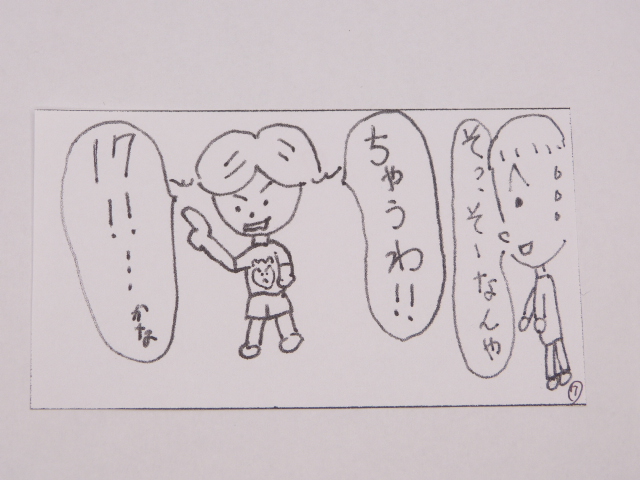 そっ、そーなんや
ちゃうわ!!
17!!…かな
7